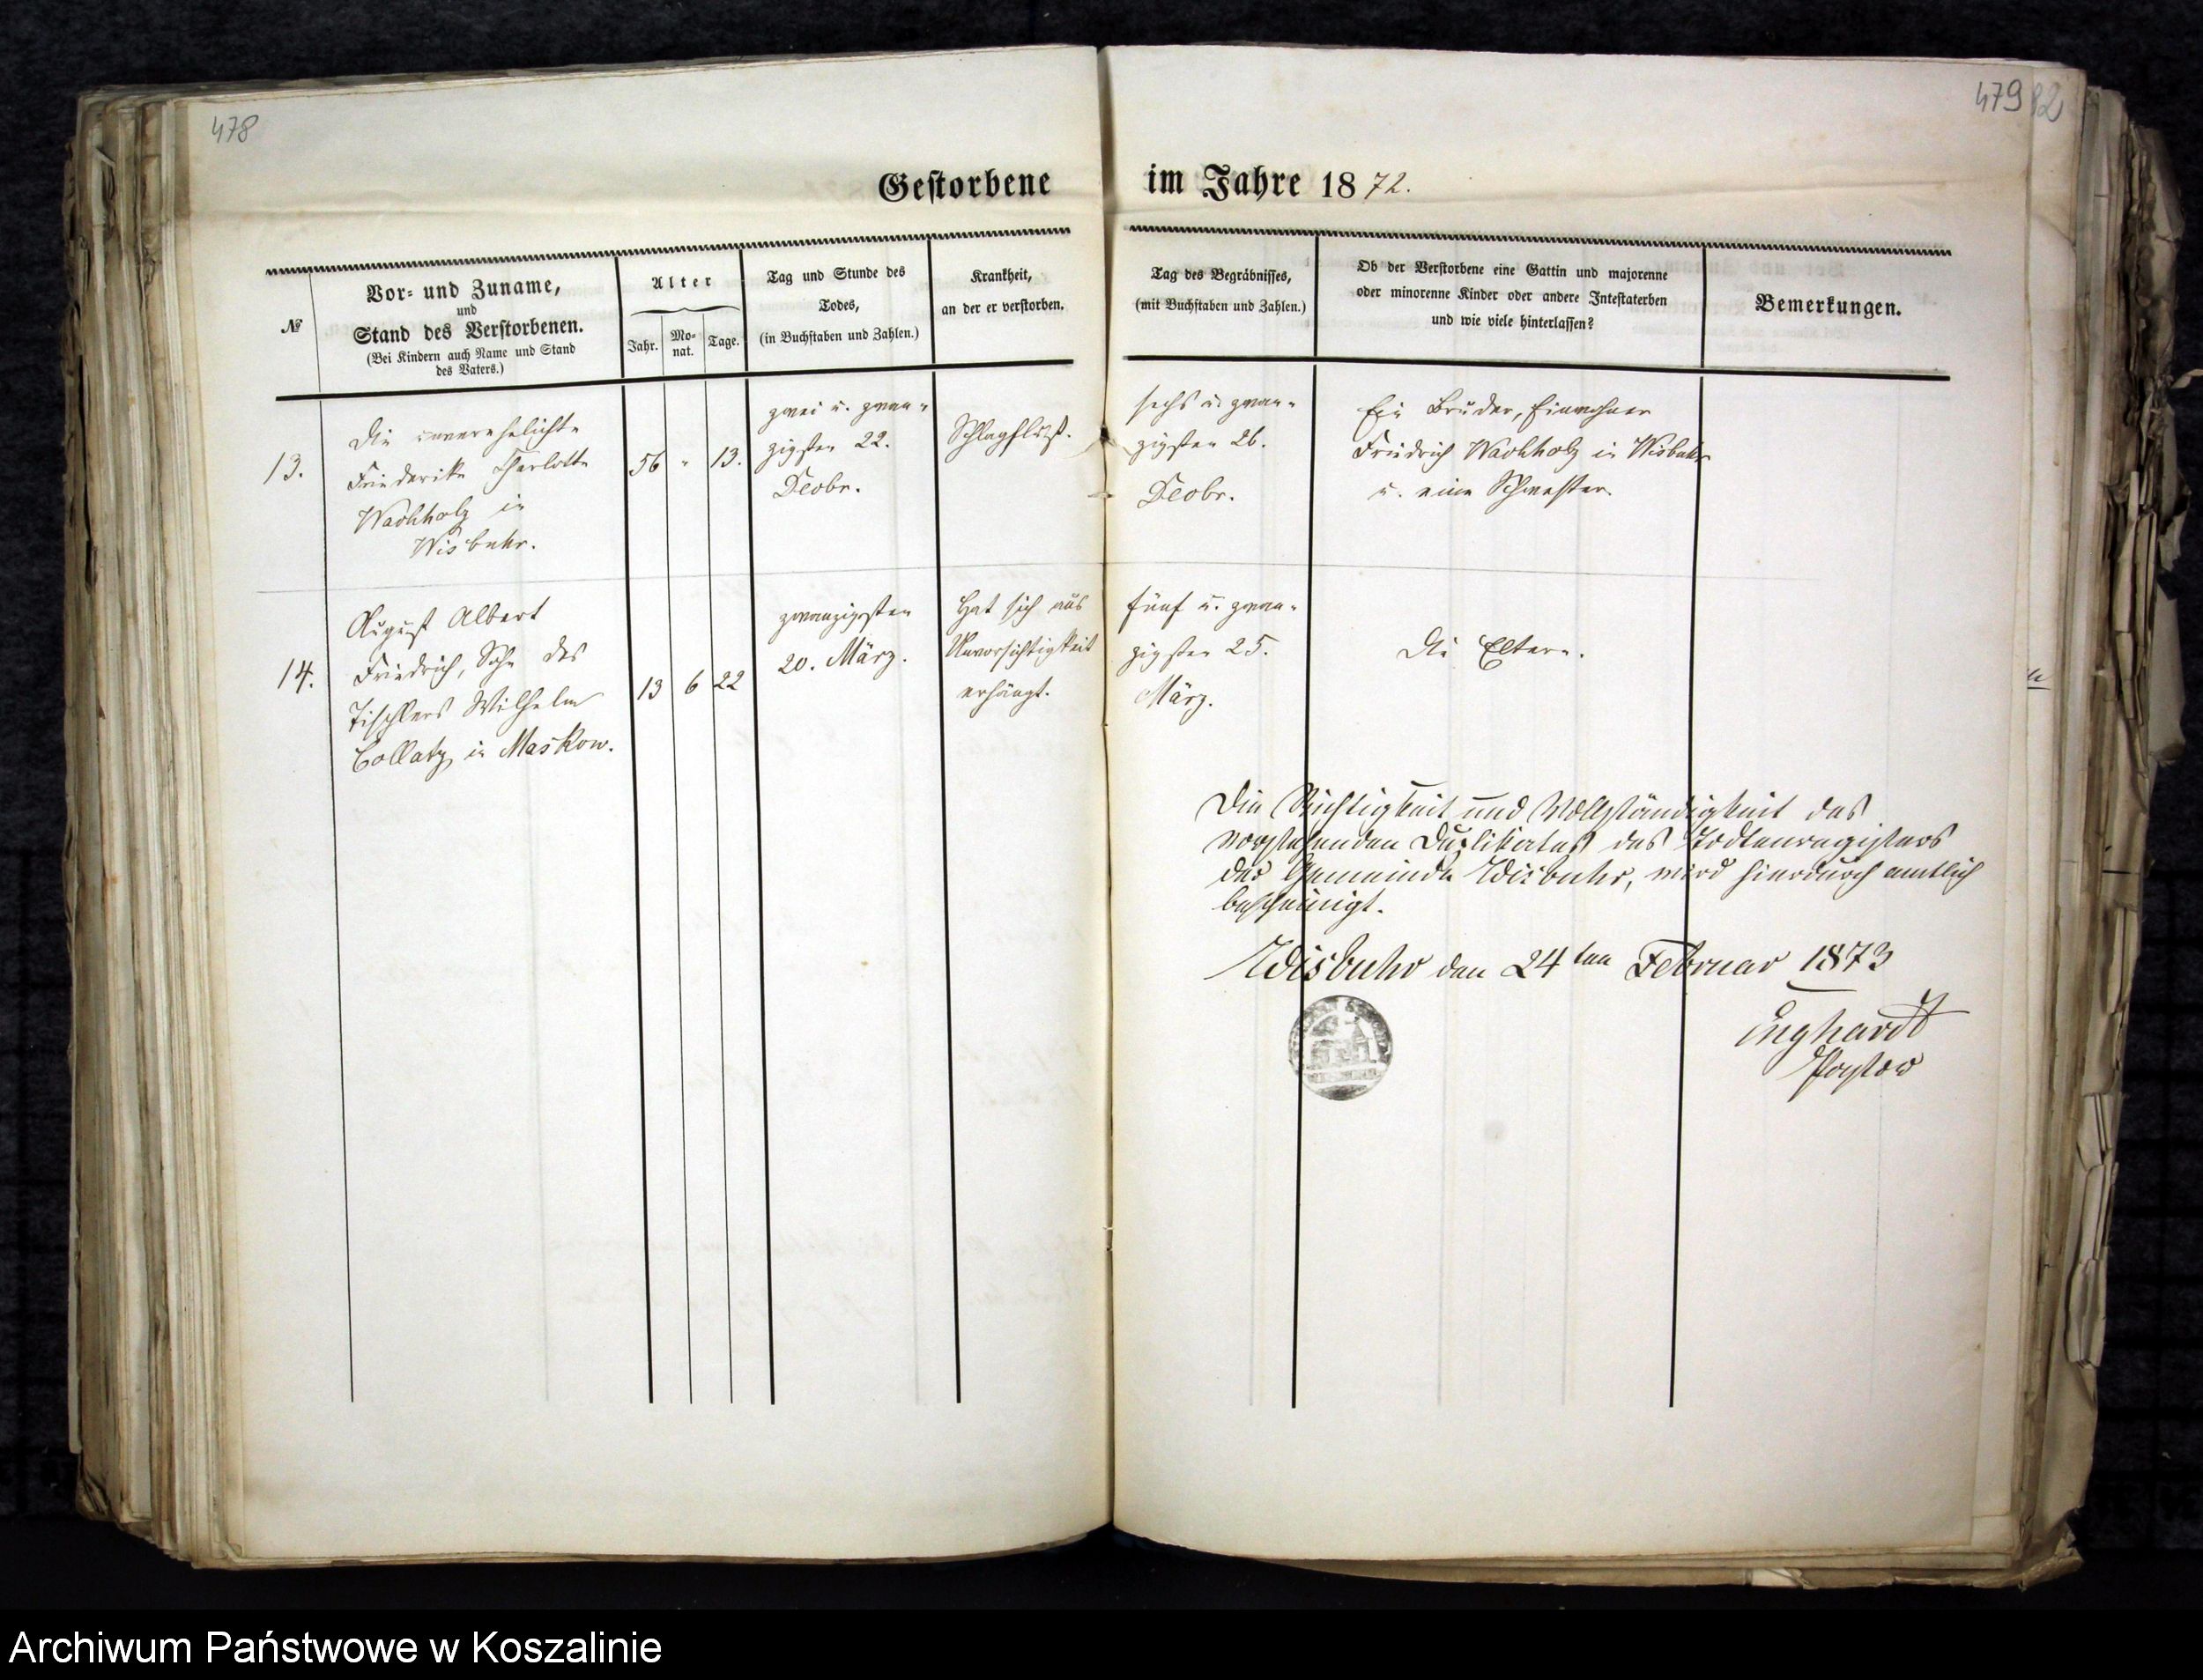 478
479
82
Gestorbene im Jahre 1872.
№
Vor- und Zuname,
und
Stand des Verstorbenen.
(Bei Kindern auch Name und Stand
des Vaters.)
Alter
Jahr.
Mo-
nat.
Tage.
Tag und Stunde des
Todes,
(in Buchstaben und Zahlen.)
Krankheit,
an der er verstorben.
Tag des Begräbnisses,
(mit Buchstaben und Zahlen.)
Ob der Verstorbene eine Gattin und majorenne
oder minorenne Kinder oder andere Intestaterben
und wie viele hinterlassen?
Bemerkungen.
13.
Die unverehelichte
Friederike Charlotte
Wachholz in
Wisbuhr.
56 " 13.
zwei u. zwan-
zigsten 22.
Decbr.
Schlagfluß.
sechs u. zwan-
zigsten 26.
Decbr.
Ein Bruder, Einwohner
Friedrich Wachholz in Wisbuhr
u. eine Schwester.
14.
August Albert
Friedrich, Sohn des
Tischlers Wilhelm
Collatz in Maskow.
13 6 22
zwanzigsten
20. März.
Hat sich aus
Unvorsichtigkeit
erhängt.
fünf u. zwan-
zigsten 25.
März.
Die Eltern.
Die Richtigkeit und Vollständigkeit des
vorstehenden Duplikates des Todtenregisters
der Gemeinde Wisbuhr, wird hierdurch amtlich
bescheinigt.
Wisbuhr den 24ten Februar 1873
Enghardt
Pastor
Archiwum Państwowe w Koszalinie